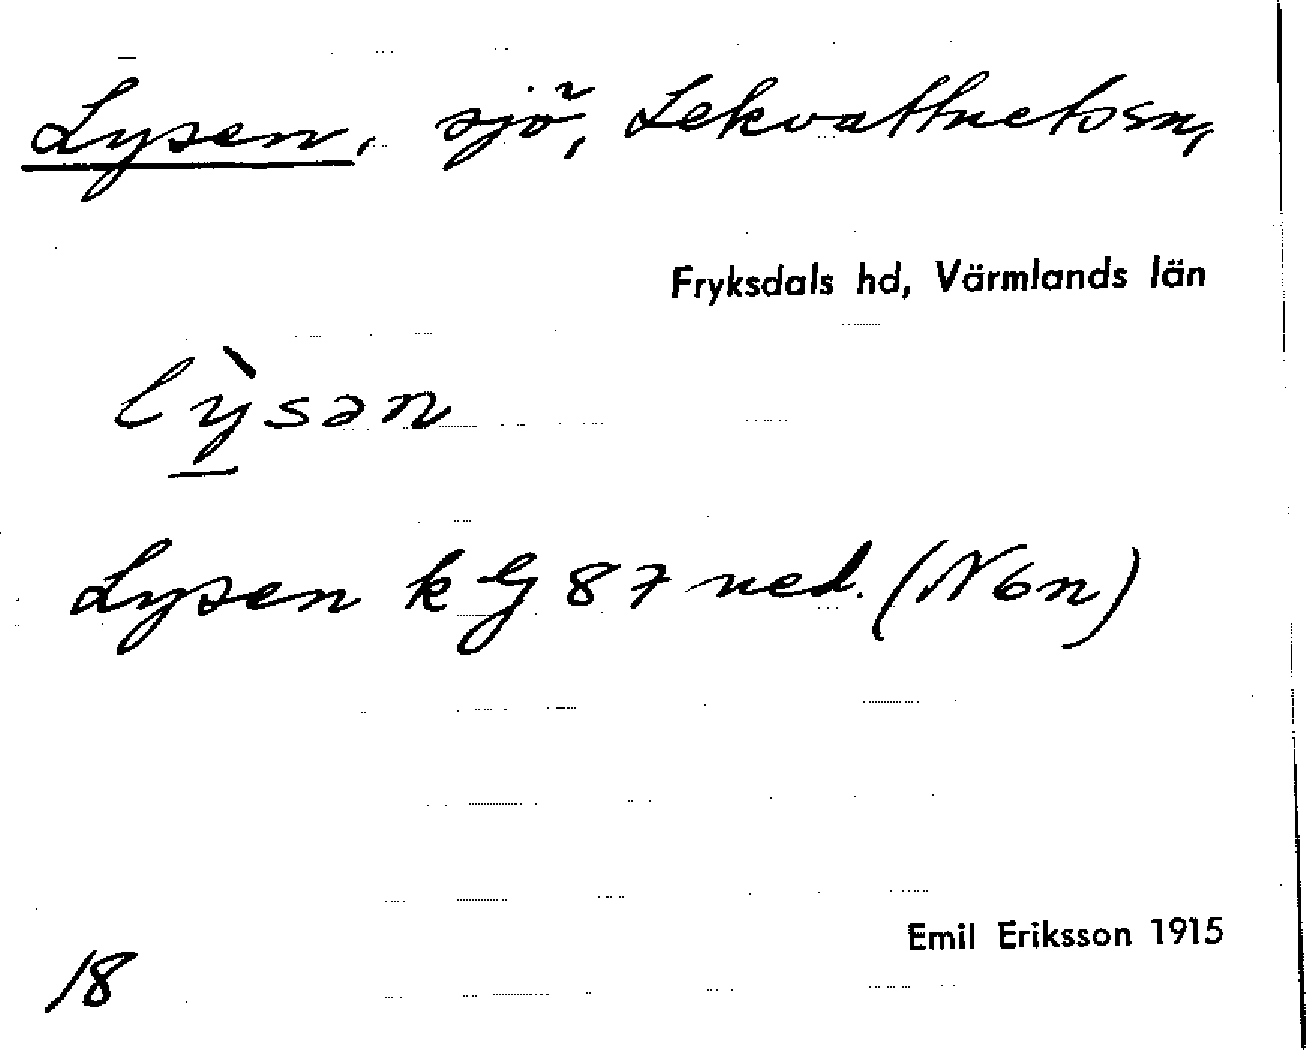 Lysen, sjö, Lekvattnets sn,
Fryksdals hd, Värmlands län
lỳsən
Lysen k G 87 ned. (N ön)
Emil Eriksson 1915
18